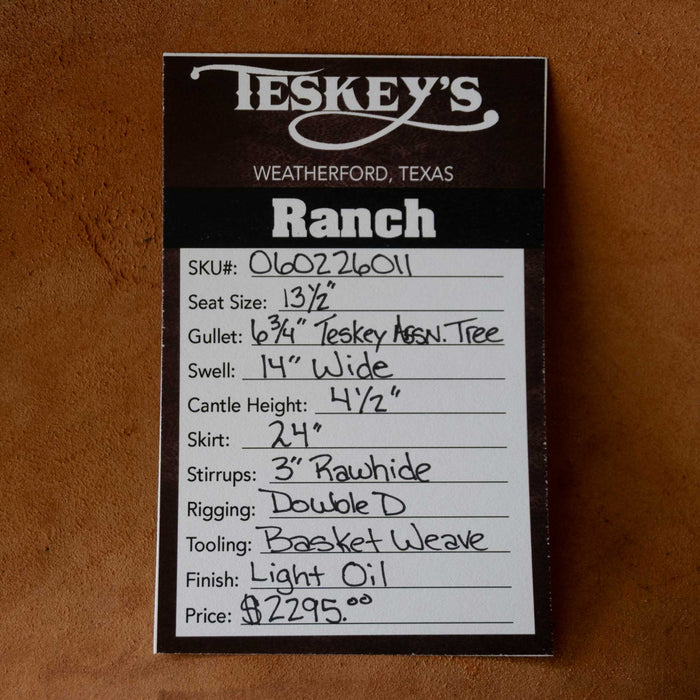 TESKEY'S
WEATHERFORD, TEXAS
Ranch
SKU#: 060226011
Seat Size: 13½"
Gullet: 6¾" Teskey Assn. Tree
Swell: 14" Wide
Cantle Height: 4½"
Skirt: 24"
Stirrups: 3" Rawhide
Rigging: Double D
Tooling: Basket Weave
Finish: Light Oil
Price: $2295.00